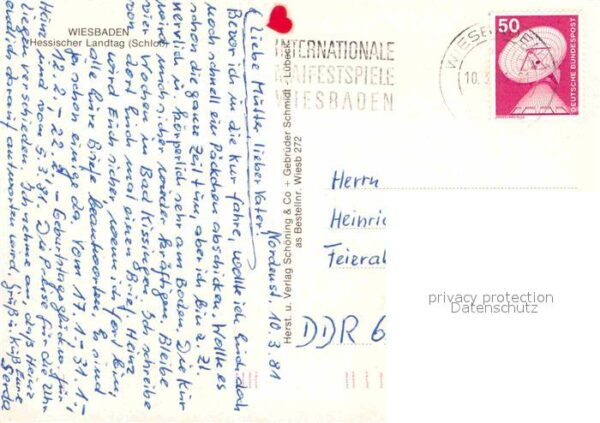 WIESBADEN
Hessischer Landtag (Schloß)
Liebe Mutter, lieber Vater!
Nordenst. 10.3.81
Bevor ich in die Kur fahre, wollte ich Euch doch
noch schnell ein Päckchen abschicken. Wollte es
schon die ganze Zeit tun, aber ich bin z. Zt.
nervlich u. körperlich sehr am Boden. Die Kur
wird mich sicher wieder kräftigen. Bleibe
vier Wochen in Bad Kissingen. Ich schreibe
dort Euch mal einen Brief. Heinz
wird Euch sicher, wenn ich fort bin,
die Eure Briefe beantworten. Es sind
ja schon einige da. Vom 17.1. - 31.1. -
12.2. - 22.2. - Geburtstagsglückw. für
Heinz und vom 5.3.81. Die Preise für die Uhr
liegen verschieden. Ich nehme an, daß Heinz
endlich darauf antworten wird. Grüß u. Küß Eure
Gerda
Herst. u. Verlag Schöning & Co + Gebrüder Schmidt - Lübeck
as Bestellnr. Wiesb 272
INTERNATIONALE
MAIFESTSPIELE
WIESBADEN
WIESB
10.3
50
DEUTSCHE BUNDESPOST
Herrn
Heinric
Feieral
DDR 6
privacy protection
Datenschutz